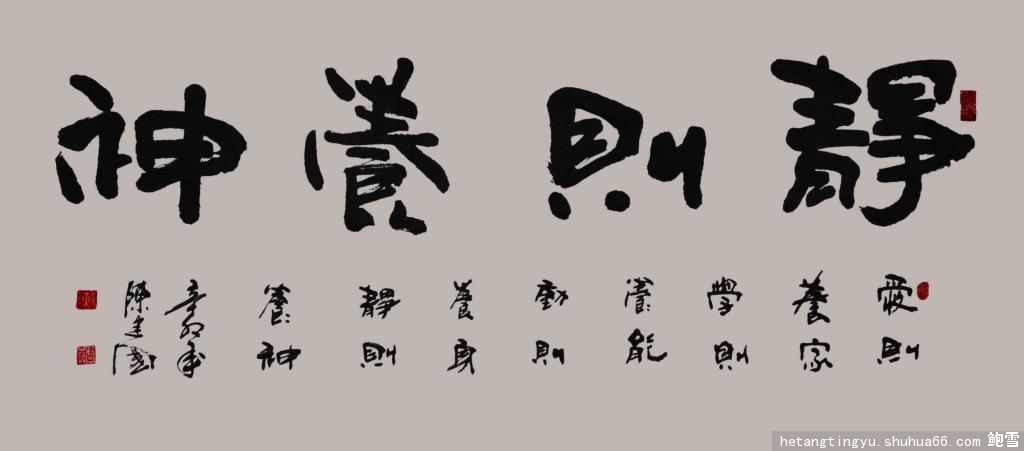 靜則養神
愛則
養家
學則
養能
動則
養身
靜則
養神
辛卯年
陳建國
hetangtingyu.shuhua66.com 鲍雪